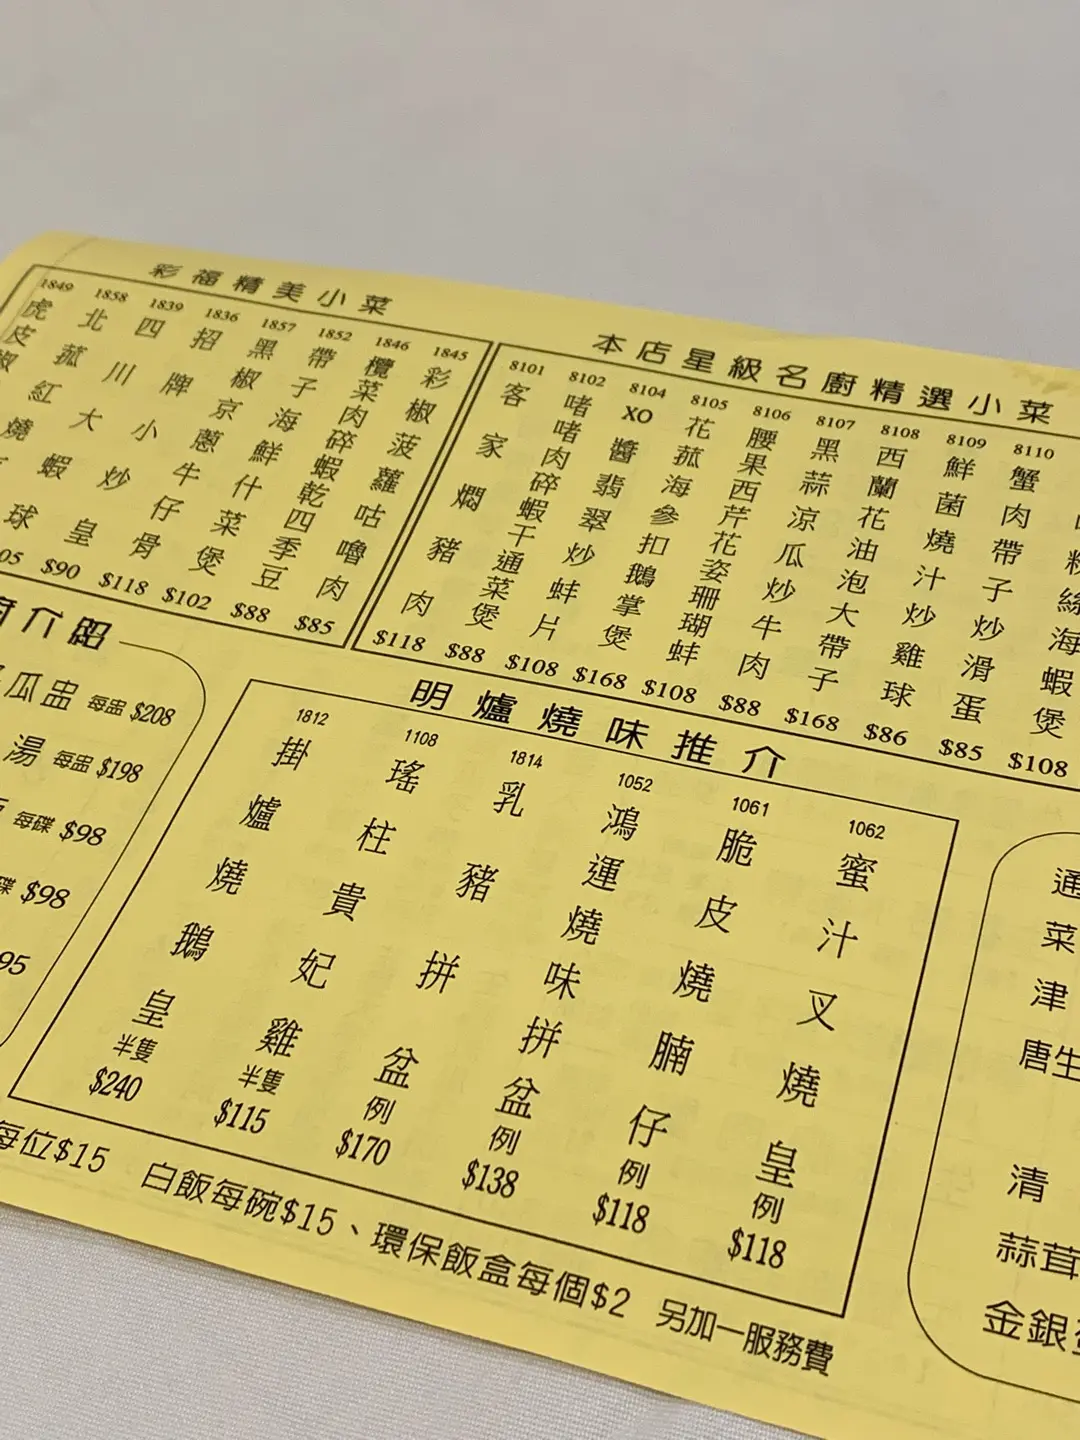 彩福精美小菜
1849 虎皮椒
1858 北菰紅燒
1839 四川大蝦球 $90
1836 招牌小炒皇 $118
1857 黑椒京蔥牛仔骨 $102
1852 帶子海鮮什菜煲 $88
1846 欖菜肉碎蝦乾四季豆
1845 彩椒菠蘿咕嚕肉 $85
本店星級名廚精選小菜
8101 客家燜豬肉 $118
8102 啫啫肉碎蝦干通菜煲 $88
8104 XO醬翡翠炒蚌片 $108
8105 花菰海參扣鵝掌煲 $168
8106 腰果西芹花姿珊瑚蚌 $108
8107 黑蒜涼瓜炒牛肉 $88
8108 西蘭花油泡大帶子 $168
8109 鮮菌燒汁炒雞球 $86
8110 蟹肉帶子炒滑蛋 $85
海蝦煲 $108
介紹
瓜盅 每盅 $208
湯 每盅 $198
每碟 $98
碟 $98
95
明爐燒味推介
1812 掛爐燒鵝皇 半隻 $240
1108 瑤柱貴妃雞 半隻 $115
1814 乳豬拼盆 例 $170
1052 鴻運燒味拼盆 例 $138
1061 脆皮燒腩仔 例 $118
1062 蜜汁叉燒皇 例 $118
每位$15 白飯每碗$15、環保飯盒每個$2 另加一服務費
通
菜
津
唐生
清
蒜茸
金銀